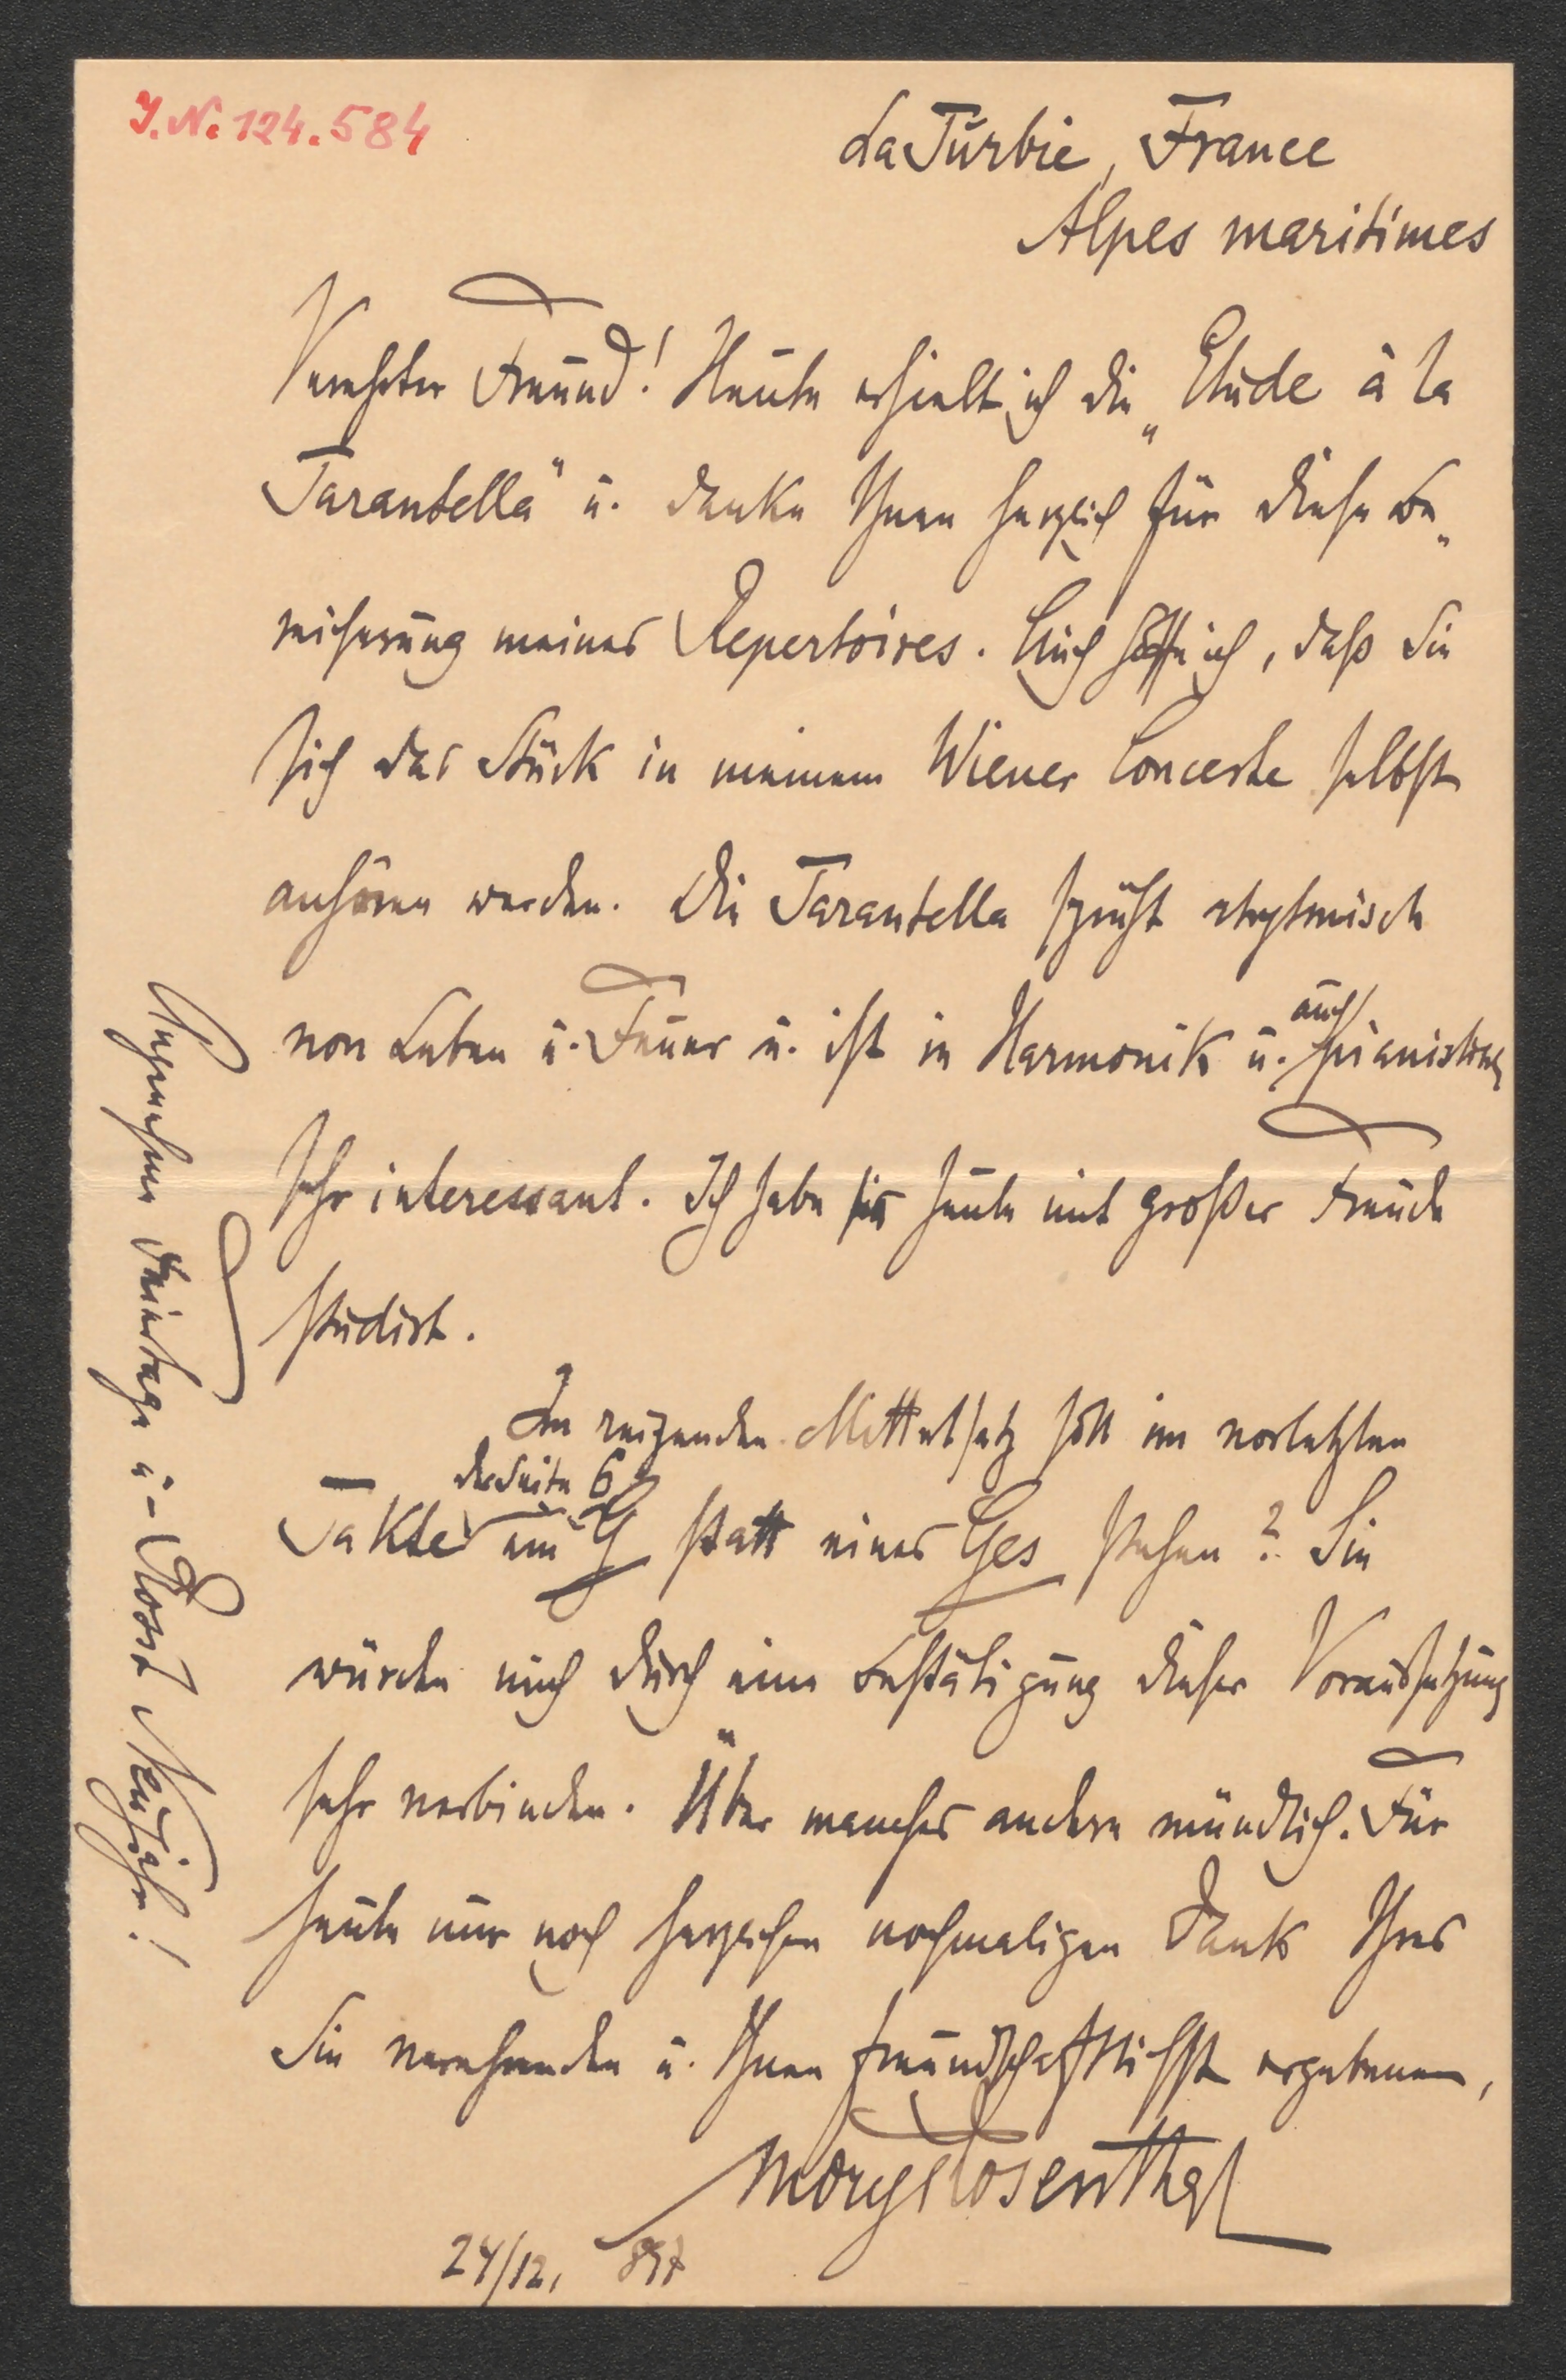 J.N. 124.584
La Turbie, France
Alpes maritimes
Verehrter Freund! Heute erhielt ich die „Etude à la
Tarantella" u. danke Ihnen herzlich für diese Be„
reicherung meines Repertoires. Auch hoffe ich, daß Sie
sich das Stück in meinem Wiener Concerte selbst
anhören werden. Die Tarantella sprüht rhytmisch
von Leben u. Feuer u. ist in Harmonik u. auch pianistisch
sehr interessant. Ich habe sie heute mit großer Freude
studirt.
Im reizenden Mittelsatz soll im vorletzten
Takte der Seite 6 ein G statt eines Ges stehen? Sie
würden mich durch eine Bestätigung dieser Voraussetzung
sehr verbinden. Über manches andere mündlich. Für
heute nur noch herzlichen nochmaligen Dank Ihres
Sie verehrenden u. Ihnen freundschaftlichst ergebenen,
Moriz Rosenthal
24/12, 897
Angenehme Feiertage u – Prosit Neujahr!